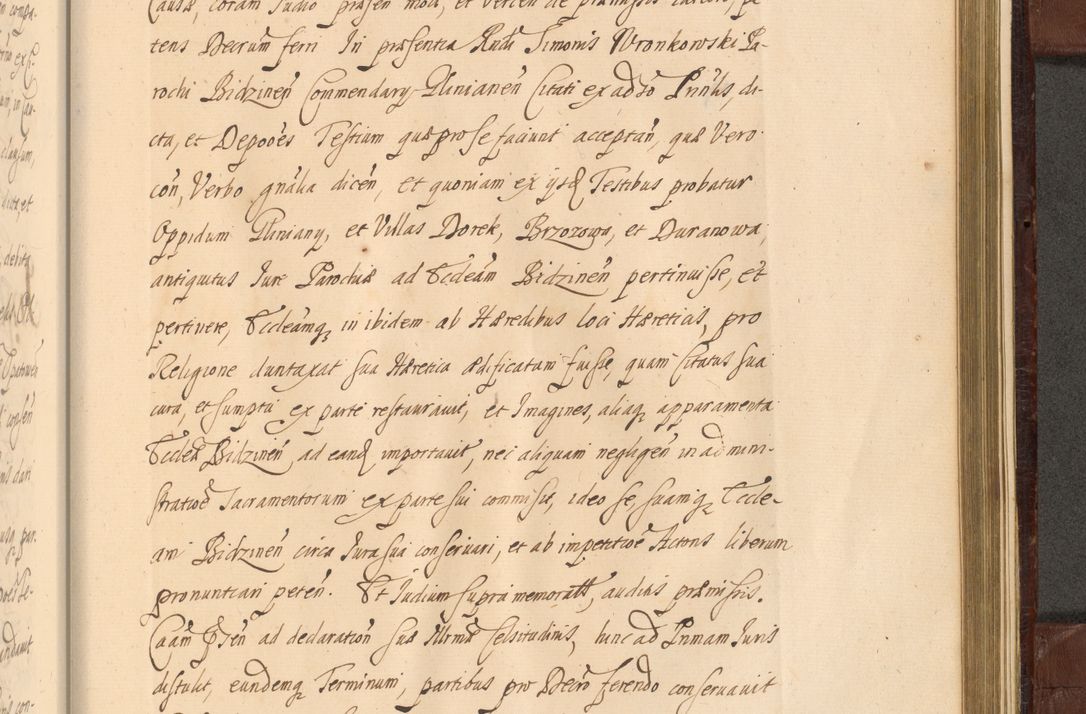 Causa, coram Judio præsen mota, et
tens Decrum ferri In præsentia Rndi Simonis Wronkowski Pa-
rochi Bidzinen̄ Commendary Glinianen̄ Citati ex adso Prinlis, di-
cta, et Depoōes Testium quæ pro se faciunt acceptan̄, quæ Vero
con̄, Verbo gn̄alia dicen̄, et quoniam ex ysd Testibus probatur
Oppidum Gliniany, et Villas Dorek, Brzozowa, et Duranowa,
antiquitus Jure Parochiæ ad Eccleām Bidzinen̄ pertinuisse, et
pertinere, Eccleāmq in ibidem ab Hæredibus loci Hæreticis, pro
Religione duntaxat sua Hæretica ædificatam fuisse, quam Citatus sua
cura, et sumptu ex parte restauravit, et Imagines, aliaq apparamenta
Eccleæ Bidzinen̄ ad eand importavit, nec aliquam negligen̄ in admini-
stratioē Sacramentorum ex parte sui commisit, ideo se, suamq Eccle-
am Bidzinen̄ circa Jura sua conservari, et ab impetitioē Actoris liberum
pronuntiari peten̄. Et Judium supra memoratt, auditis præmissis.
Caām ad declaration̄ suæ Illrmæ Celsitudinis, hinc ad Primam Juris
distulit, eundemq Terminum, partibus pro Decro ferendo conservavit